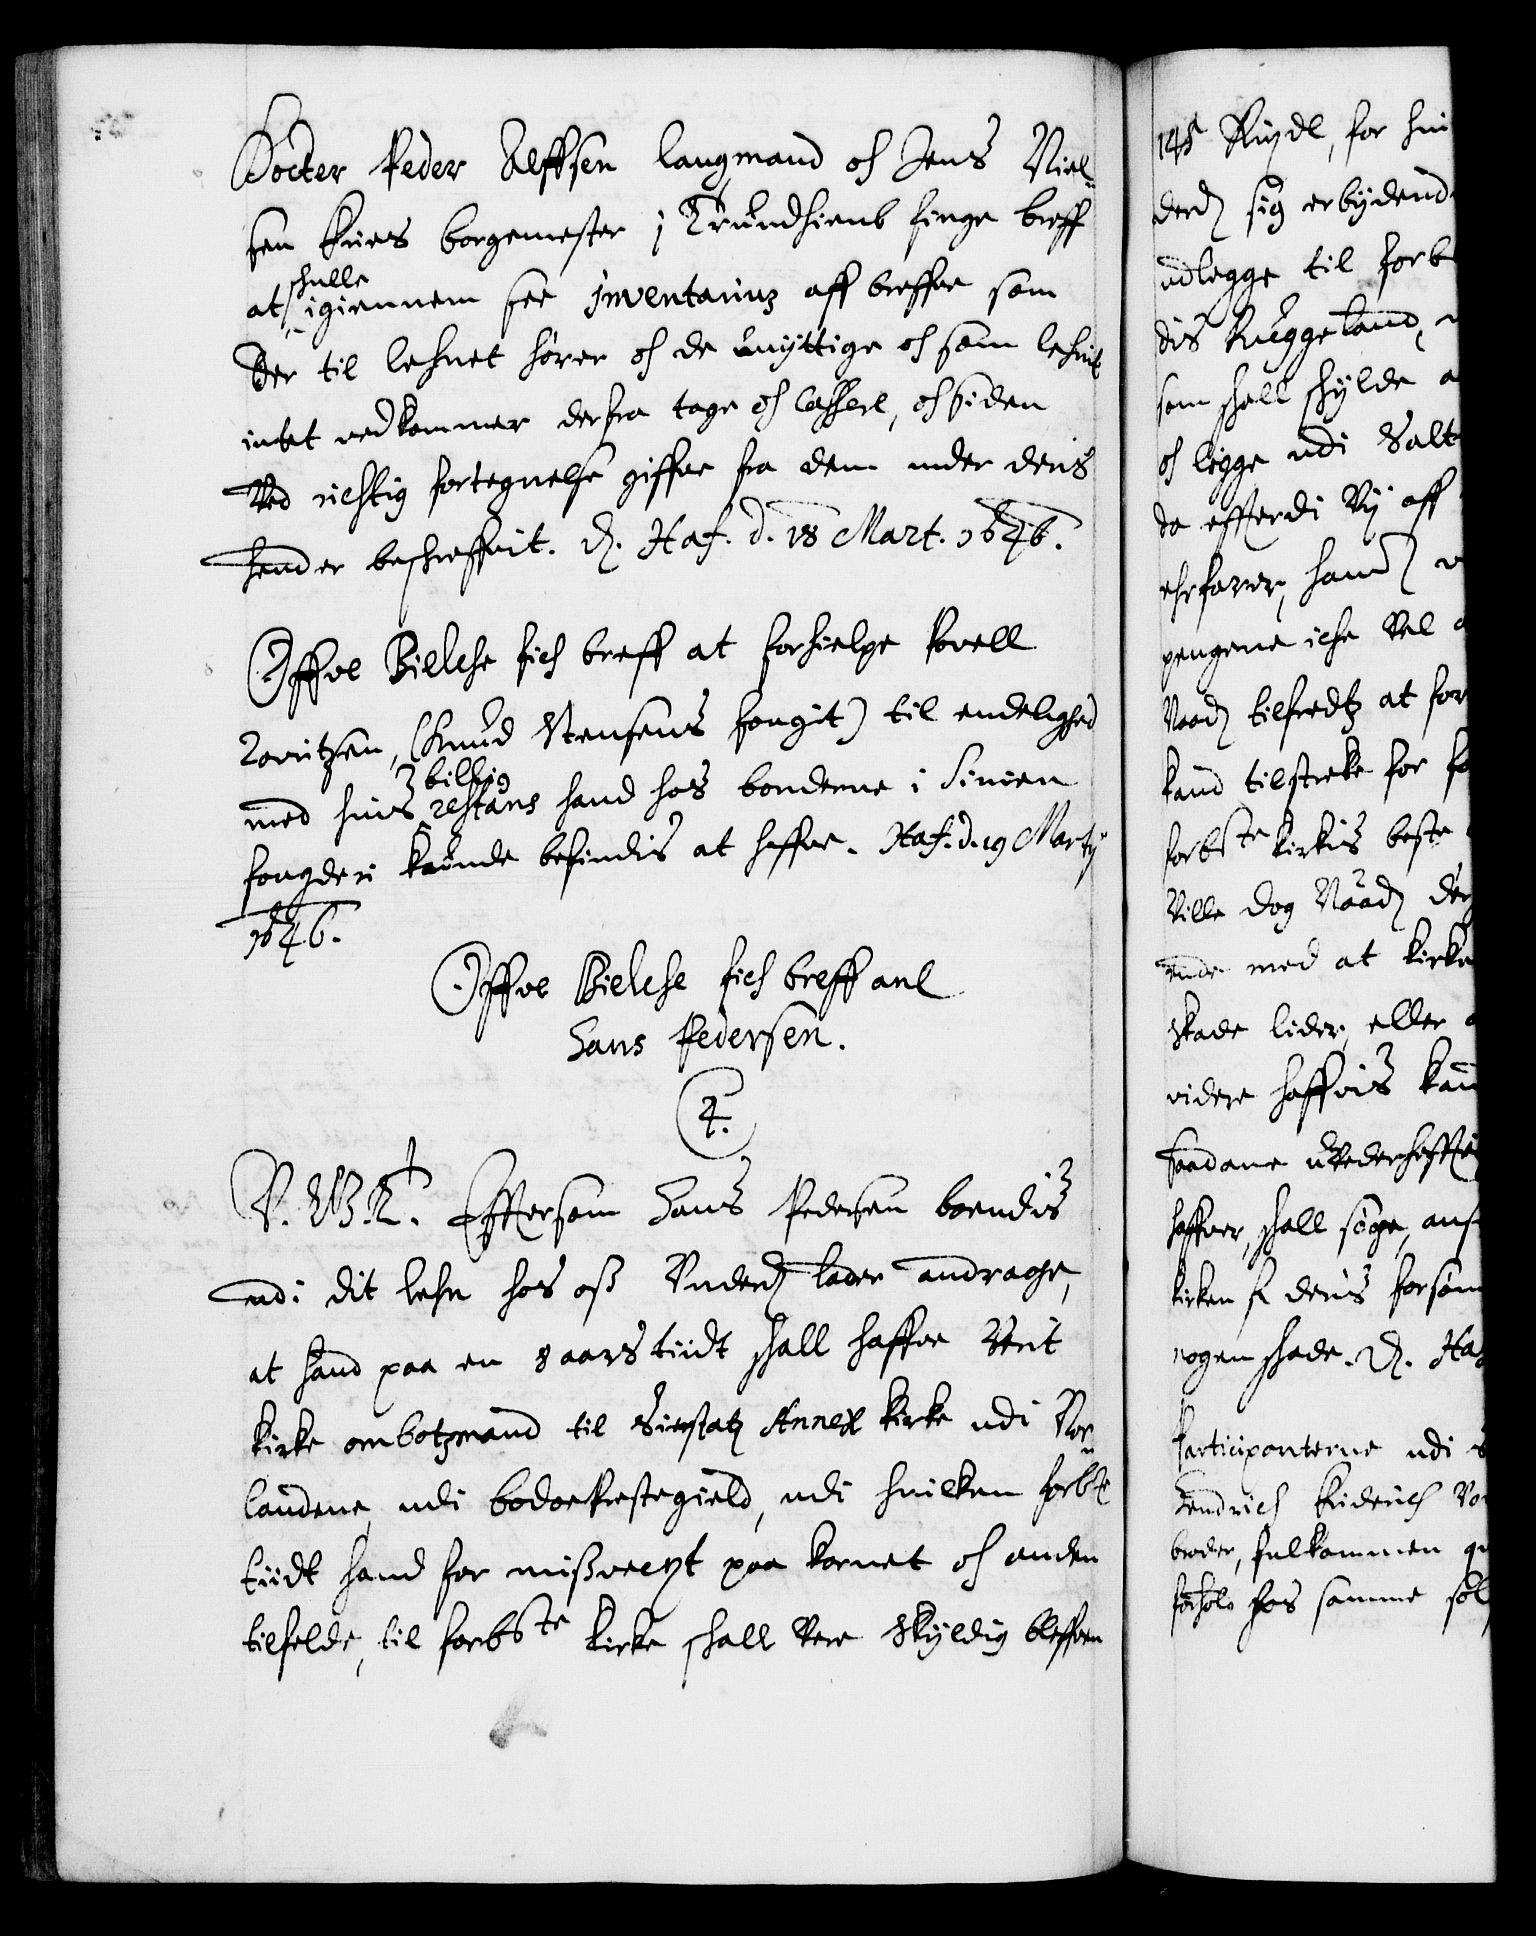 Docter Peder Alffsen laugmand oc Jens Niel-
sen Kues borgemester j Trundhiemb finge breff
at skulle igiennem see Inventarium aff breffue som
der til lehnet hører oc de unyttige oc som lehnit
intet vedkommer derfra tage oc Casserl, oc siden
Ved richtig fortegnelse giffue fra dem under deris
hender beskreffuit. D. Haf. d. 18 Mart. 1646.
Offue Bielche fich breff at forhielpe Povell
Lauritzsen, (Knud Stensens fougit) til endelighed
med huis billig restans hand hos bønderne i Sinien
fougderi kunde befindis at haffue. Haf. d. 19 Martij
1646.
Offue Bielche fich breff anl
Hans Pedersen.
4.
V. G. T. Effterson Hans Pedersen boendis
udi dit lehn hos oss Underd lader andrage,
at hand paa en 8 aars tiidt skall haffue verit
kirke ombotzmand til Annex kirke udi Nor-
landene udi bodoe Prestegield, udi huilken forbte
tiidt hand for missvext paa kornet oc anden
tilfelde, til forbte kirke skall vere skyldig bleffuen
148 Rixdl, for hui
derd sig erbydend
udlegge til forb
dis Ruggeland,
som skall skylde a
oc ligge udi Salt
da effterdi Vy aff
ehrfarer, hand
pengene iche Vel
Naad tilfredtz at for
kand tilstrekke for
forbte kirkis beste
Ville dog Naad
ende med at kirke
skade lider, eller
videre haffuis kan
saadane uVederhefftig
haffuer, skall søge, ans
kirken f deris forsøm
nogen skade. D. Ha
Participanterne udi
Hendrich
broder, fulkommen
hos samme søl